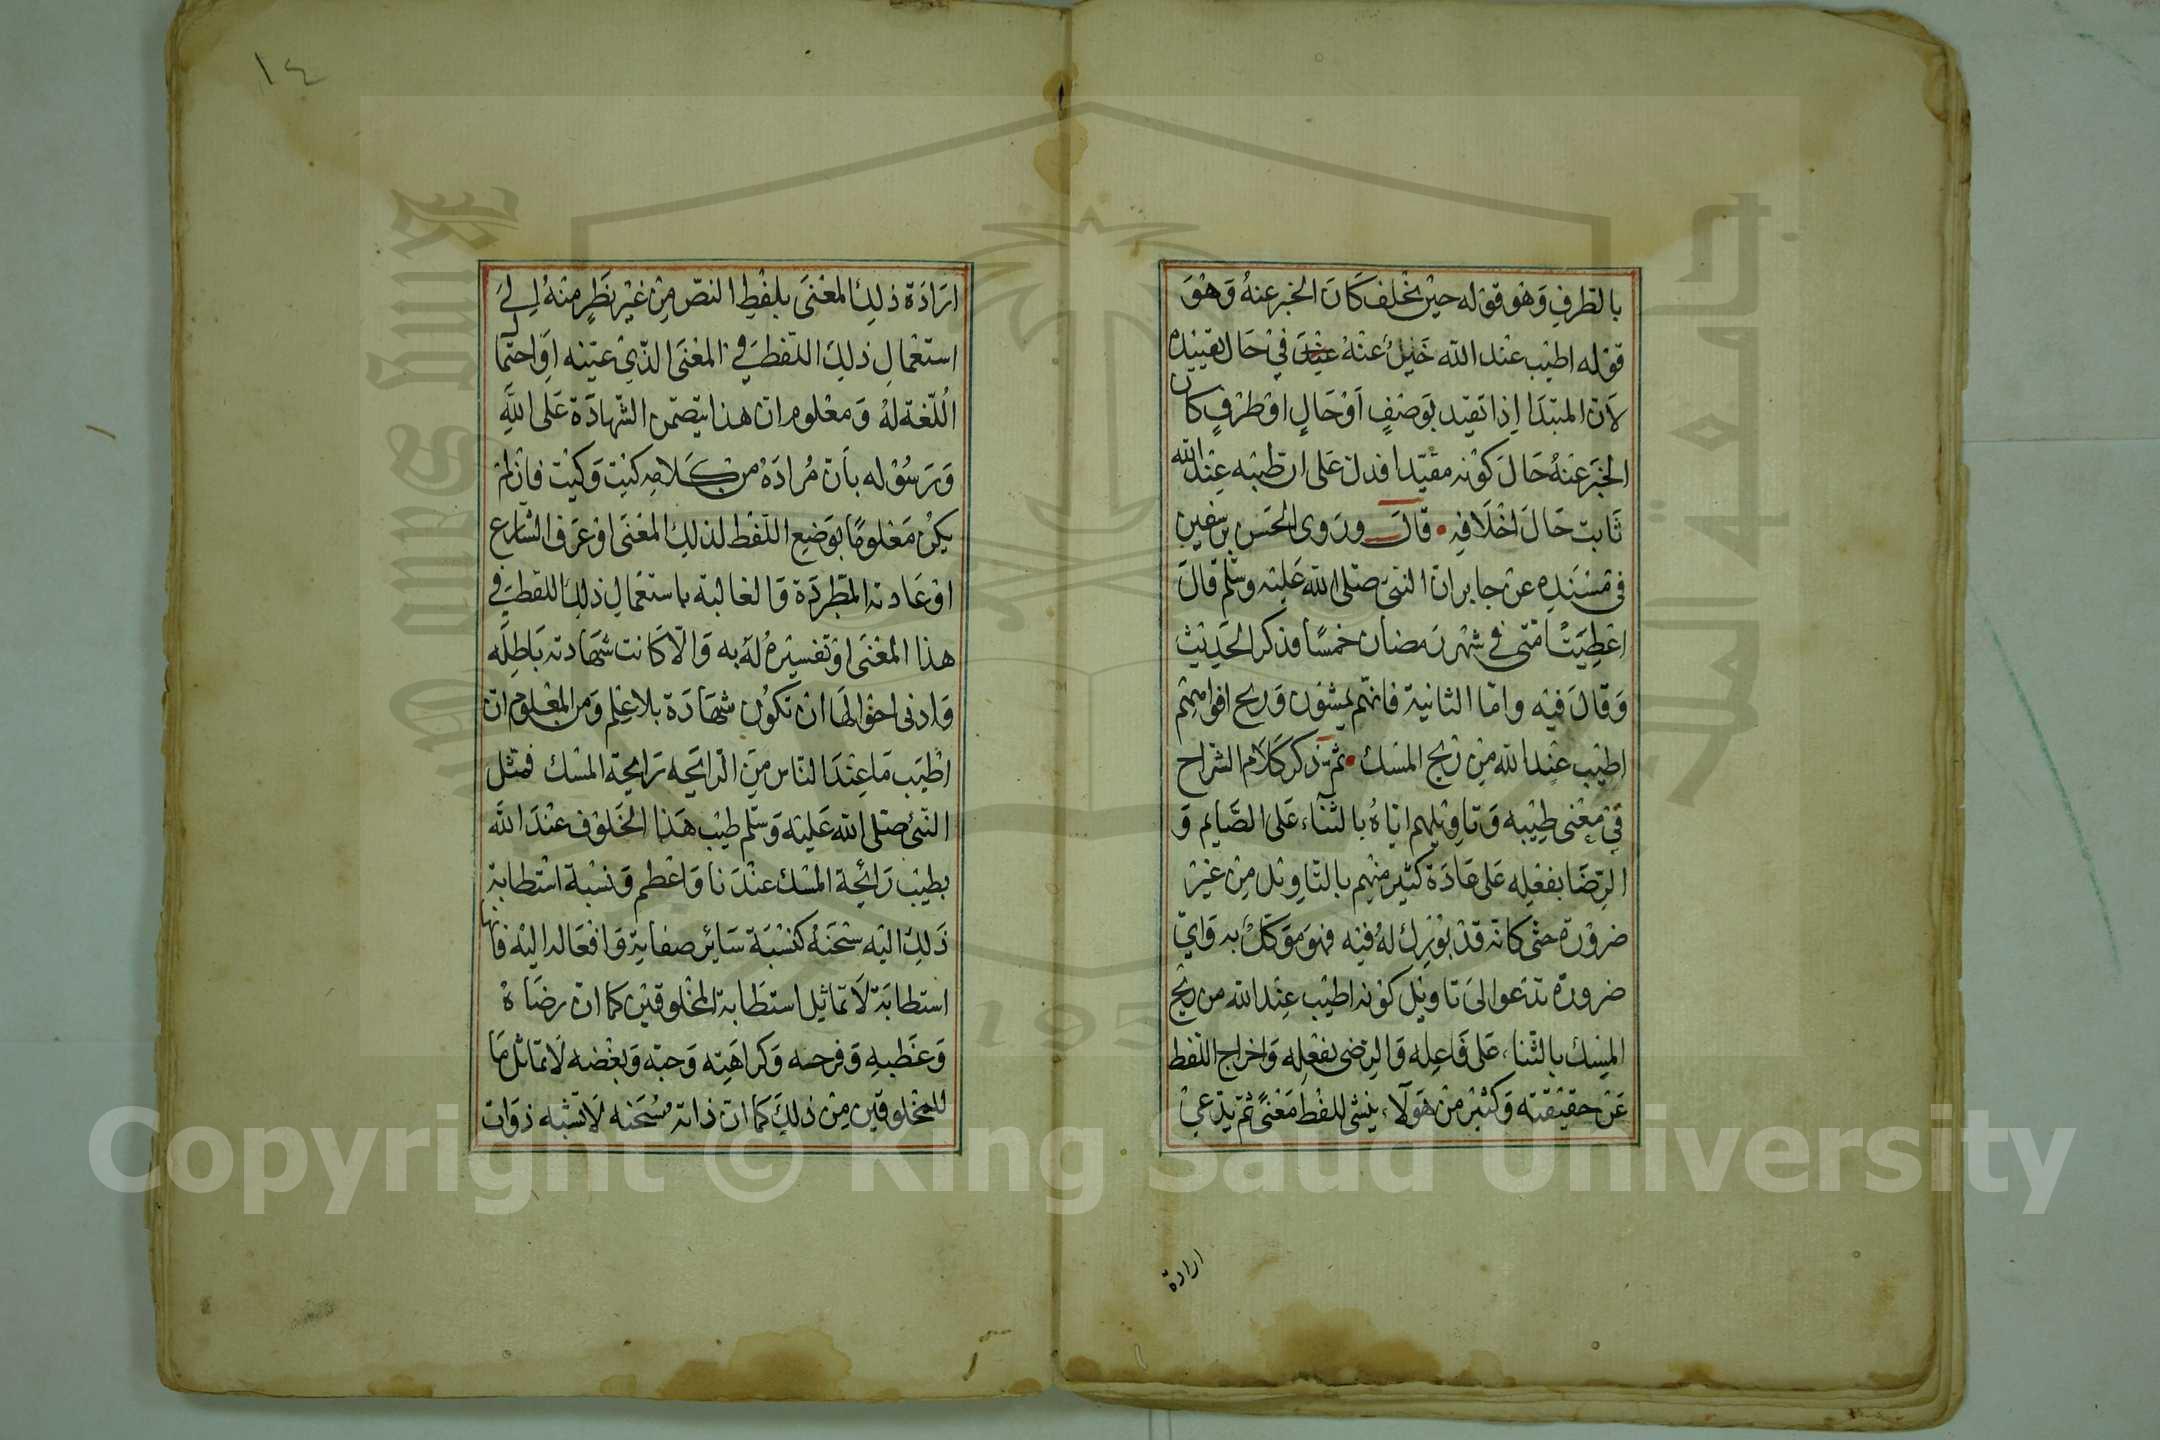 بالظرف وهو قوله حين يخلف كان الخبر عنه وهو
قوله اطيب عند الله خبر عنه عند في حال تقييده
لان المبتدا اذا تقيد بوصف او حال او ظرف كان
الخبر عنه حال كونه مقيدا فدل على ان طيبه عند الله
ثابت حال اخلافه قال وروى الحسن بن سفين
في مسنده عن جابر ان النبي صلى الله عليه وسلم قال
اعطيت امتى في شهر رمضان خمسا فذكر الحديث
وقال فيه واما الثانية فانهم يمسون وريح افواههم
اطيب عند الله من ريح المسك ثم ذكر كلام الشراح
في معنى طيبه وتاويلهم اياه بالثناء على الصايم و
الرضا بفعله على عادة كثير منهم بالتاويل من غير
ضرورة حتى كانه قد بورك له فيه فهو موكل به واي
ضرورة تدعوا الى تاويل كونه اطيب عند الله من ريح
المسك بالثناء على فاعله والرضى بفعله واخراج اللفظ
عن حقيقته وكثير من هولاء ينشى للفظ معنى ثم يدعي
ارادة
١٤
ارادة ذلك المعنى بلفظ النص من غير نظر منه الى
استعمال ذلك اللفظ في المعنى الذي عينه او احتمال
اللغة له ومعلوم ان هذا يتضمن الشهادة على الله
ورسوله بان مراده من كلامه كيت وكيت فان لم
يكن معلوما بوضع اللفظ لذلك المعنى او عرف الشارع
او عادته المطردة والغالبة باستعمال ذلك اللفظ في
هذا المعنى او تفسيره له به والا كانت شهادته باطله
وادنى احوالها ان تكون شهادة بلا علم ومن المعلوم ان
اطيب ما عند الناس من الرايحه رايحة المسك فمثل
النبي صلى الله عليه وسلم طيب هذا الخلوف عند الله
بطيب رائحة المسك عندنا واعظم ونسبة استطابة
ذلك اليه سبحنه كنسبة ساير صفاته وافعاله اليه فانها
استطابة لا تماثل استطابة المخلوقين كما ان رضاه
وغضبه وفرحه وكراهته وحبه وبغضه لا تماثل ما
للمخلوقين من ذلك كما ان ذاته سبحنه لا تشبه ذوات
Copyright © King Saud University